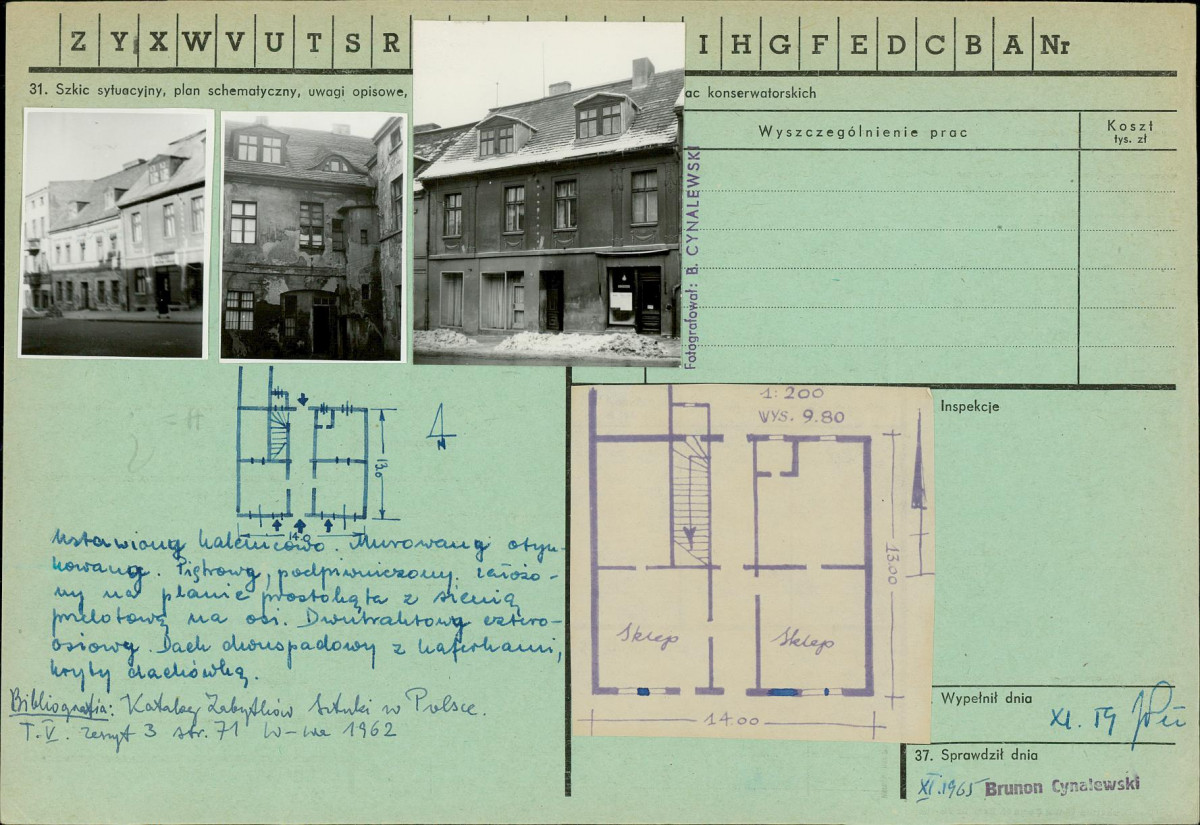 Z Y X W V U T S R I H G F E D C B A Nr
31. Szkic sytuacyjny, plan schematyczny, uwagi opisowe, ac konserwatorskich
Wyszczególnienie prac
Koszt
tys. zł
Fotografował: B. CYNALEWSKI
N
13.0
14.0
1:200
WYS. 9.80
13.00
Sklep
Sklep
14.00
Ustawiony kalenicowo. Murowany otyn-
kowany. Piętrowy, podpiwniczony. założo-
ny na planie prostokąta z sienią
przelotową na osi. Dwutraktowy cztero-
osiowy. Dach dwuspadowy z kaferkami,
kryty dachówką.
Bibliografia: Katalog Zabytków Sztuki w Polsce.
T. V. zeszyt 3 str. 71 W-wa 1962
Inspekcje
Wypełnił dnia
XI. 59
37. Sprawdził dnia
XI.1965 Brunon Cynalewski